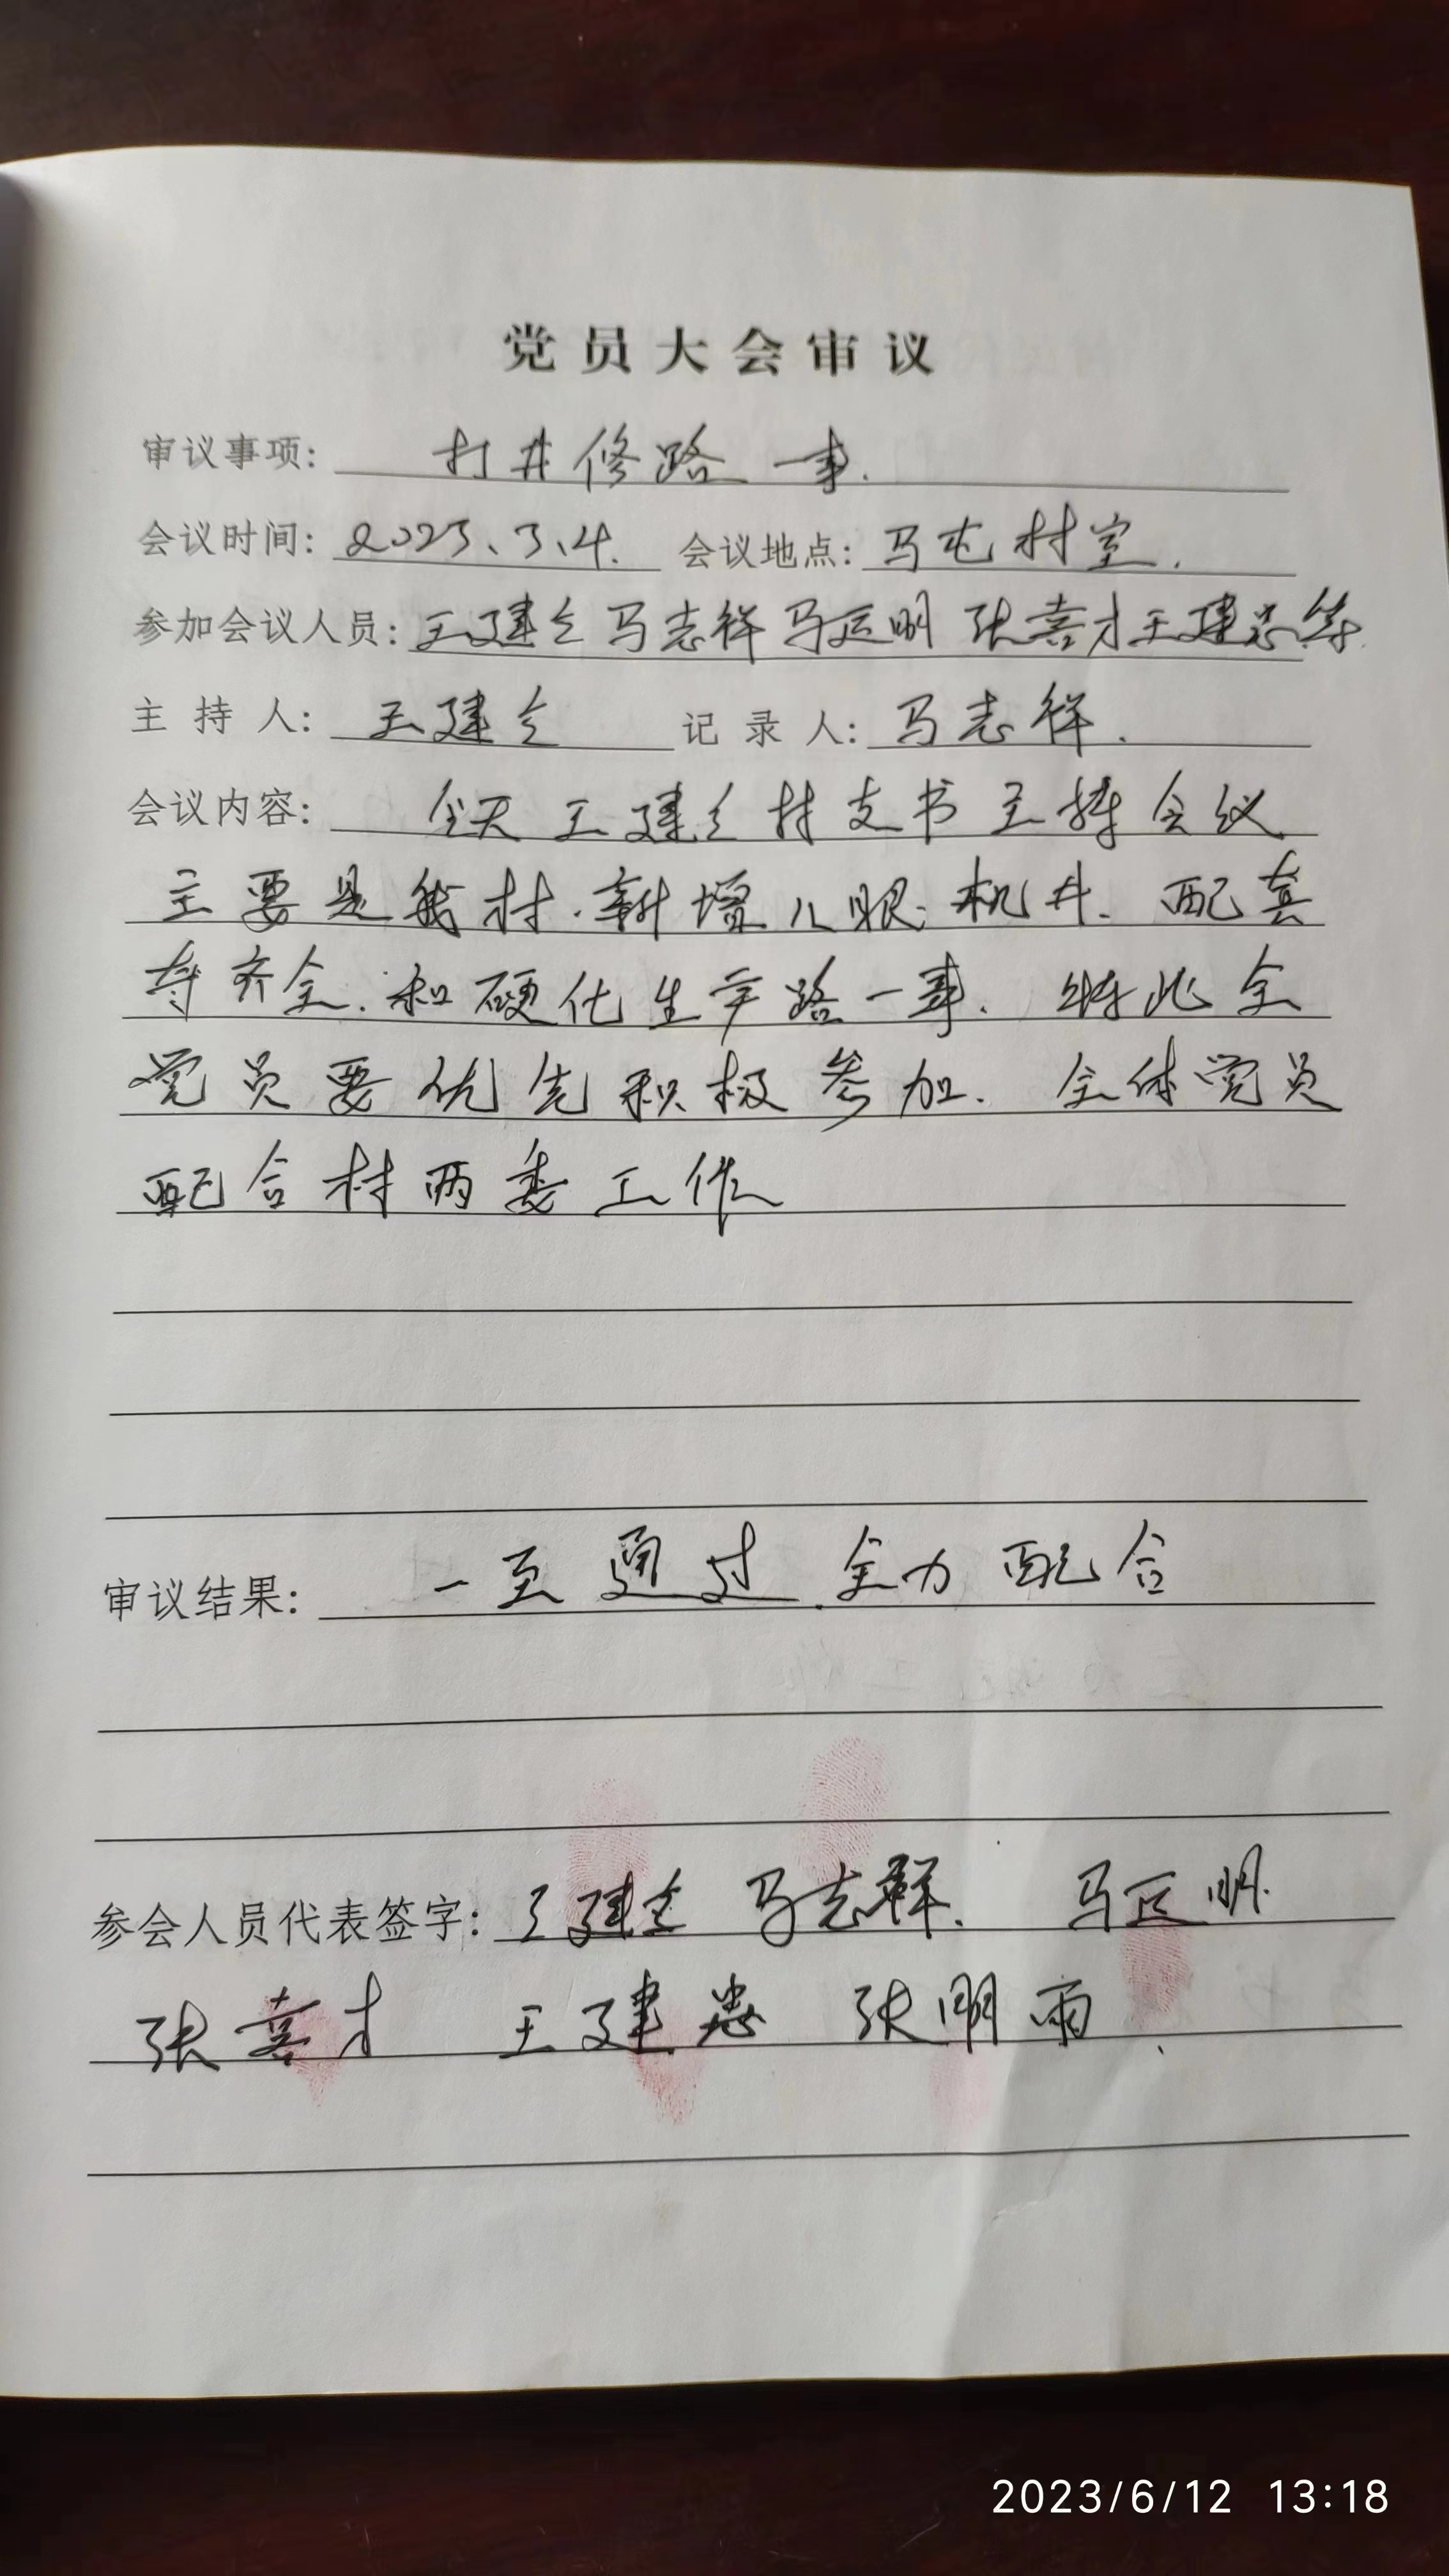 党员大会审议
审议事项: 打井修路一事.
会议时间: 2023、3、4. 会议地点: 马屯村室.
参加会议人员: 王建仝 马志祥 马运明 张喜才 王建忠等.
主持人: 王建仝 记录人: 马志祥.
会议内容: 今天王建仝村支书主持会议
主要是我村.新增几眼机井.配套
等齐全.和硬化生产路一事.特此全
党员要优先积极参加.全体党员
配合村两委工作
审议结果: 一至通过.全力配合
参会人员代表签字: 王建仝 马志群. 马运明.
张喜才 王建忠 张明雨.
2023/6/12 13:18